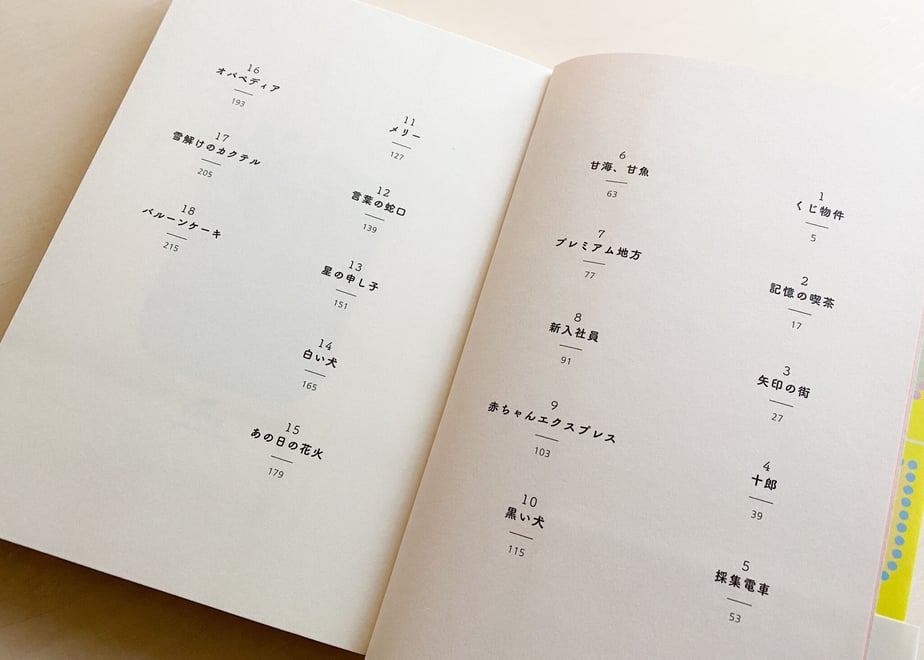 1
くじ物件
5
2
記憶の喫茶
17
3
矢印の街
27
4
十郎
39
5
採集電車
53
6
甘海、甘魚
63
7
プレミアム地方
77
8
新入社員
91
9
赤ちゃんエクスプレス
103
10
黒い犬
115
11
メリー
127
12
言葉の蛇口
139
13
星の申し子
151
14
白い犬
165
15
あの日の花火
179
16
オバペディア
193
17
雪解けのカクテル
205
18
バルーンケーキ
215